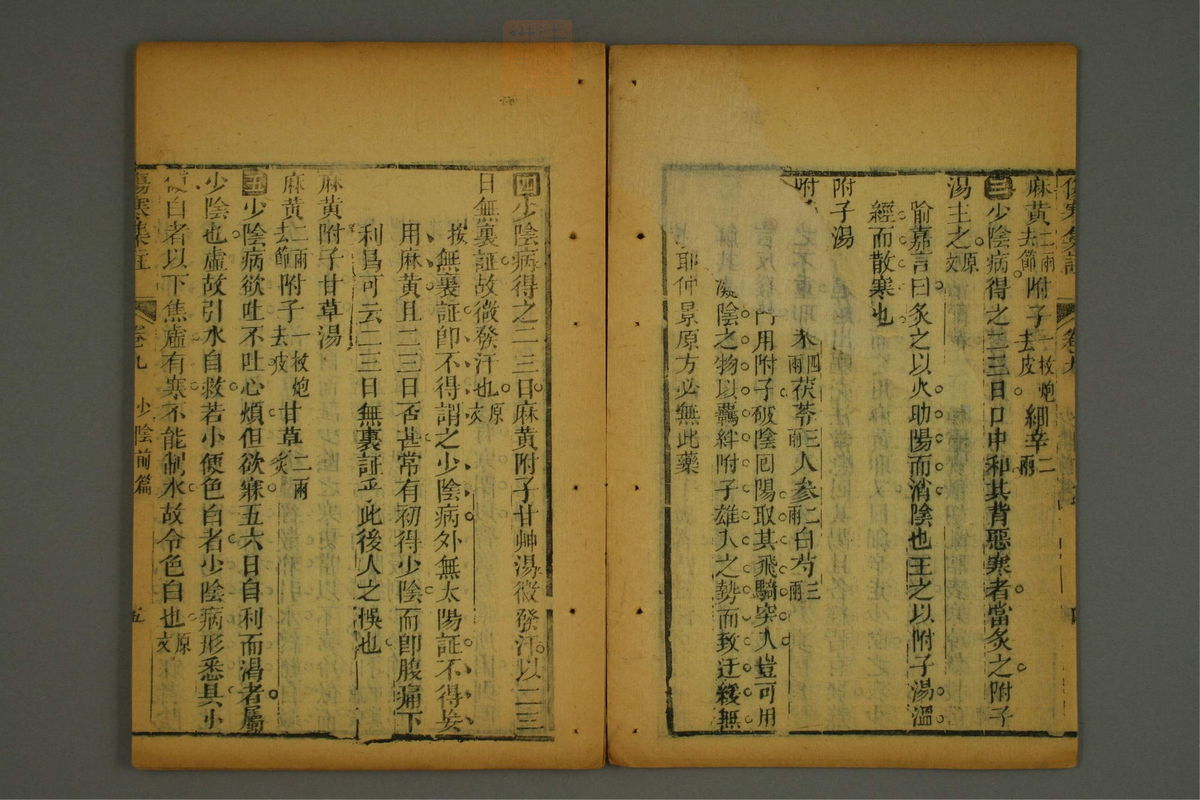 麻黃二兩去節附子一枚炮去皮細辛二兩
三少陰病得之一二日口中和其背惡寒者當灸之附子
湯主之原文
喻嘉言曰灸之以火助陽而消陰也主之以附子湯溫
經而散寒也
附子湯
附 朮四兩茯苓三兩人參二兩白芍三兩
門用附子破陰囘陽取其飛騎突入豈可用
陰之物以羈絆附子雄入之勢而致迂緩無
耶仲景原方必無此藥
四少陰病得之二三日麻黃附子甘艸湯微發汗以二三
日無裏証故微發汗也原文
按無裏証卽不得謂之少陰病外無太陽証不得妄
用麻黃且二三日否甚常有初得少陰而卽腹痛下
利爲可云二三日無裏証乎此後人之悞也
麻黃附子甘草湯
麻黃二兩去節附子一枚炮去皮甘草二兩炙
五少陰病欲吐不吐心煩但欲寐五六日自利而渴者屬
少陰也虛故引水自救若小便色白者少陰病形悉具小
便白者以下焦虛有寒不能制水故令色白也原文
傷寒集註 卷九 少陰前篇 五